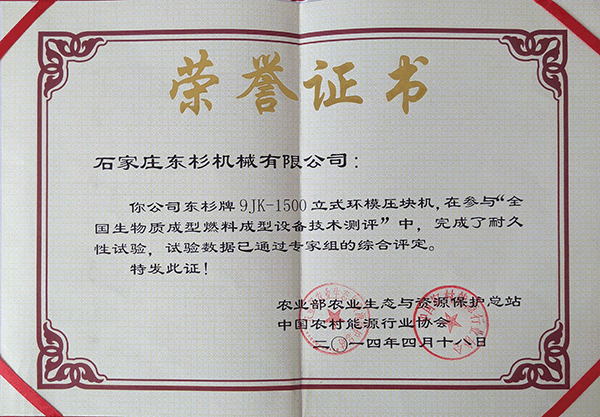 荣誉证书
石家庄东杉机械有限公司：
你公司东杉牌9JK-1500立式环模压块机，在参与“全
国生物质成型燃料成型设备技术测评”中，完成了耐久
性试验，试验数据已通过专家组的综合评定。
特发此证！
农业部农业生态与资源保护总站
中国农村能源行业协会
二〇一四年四月十八日